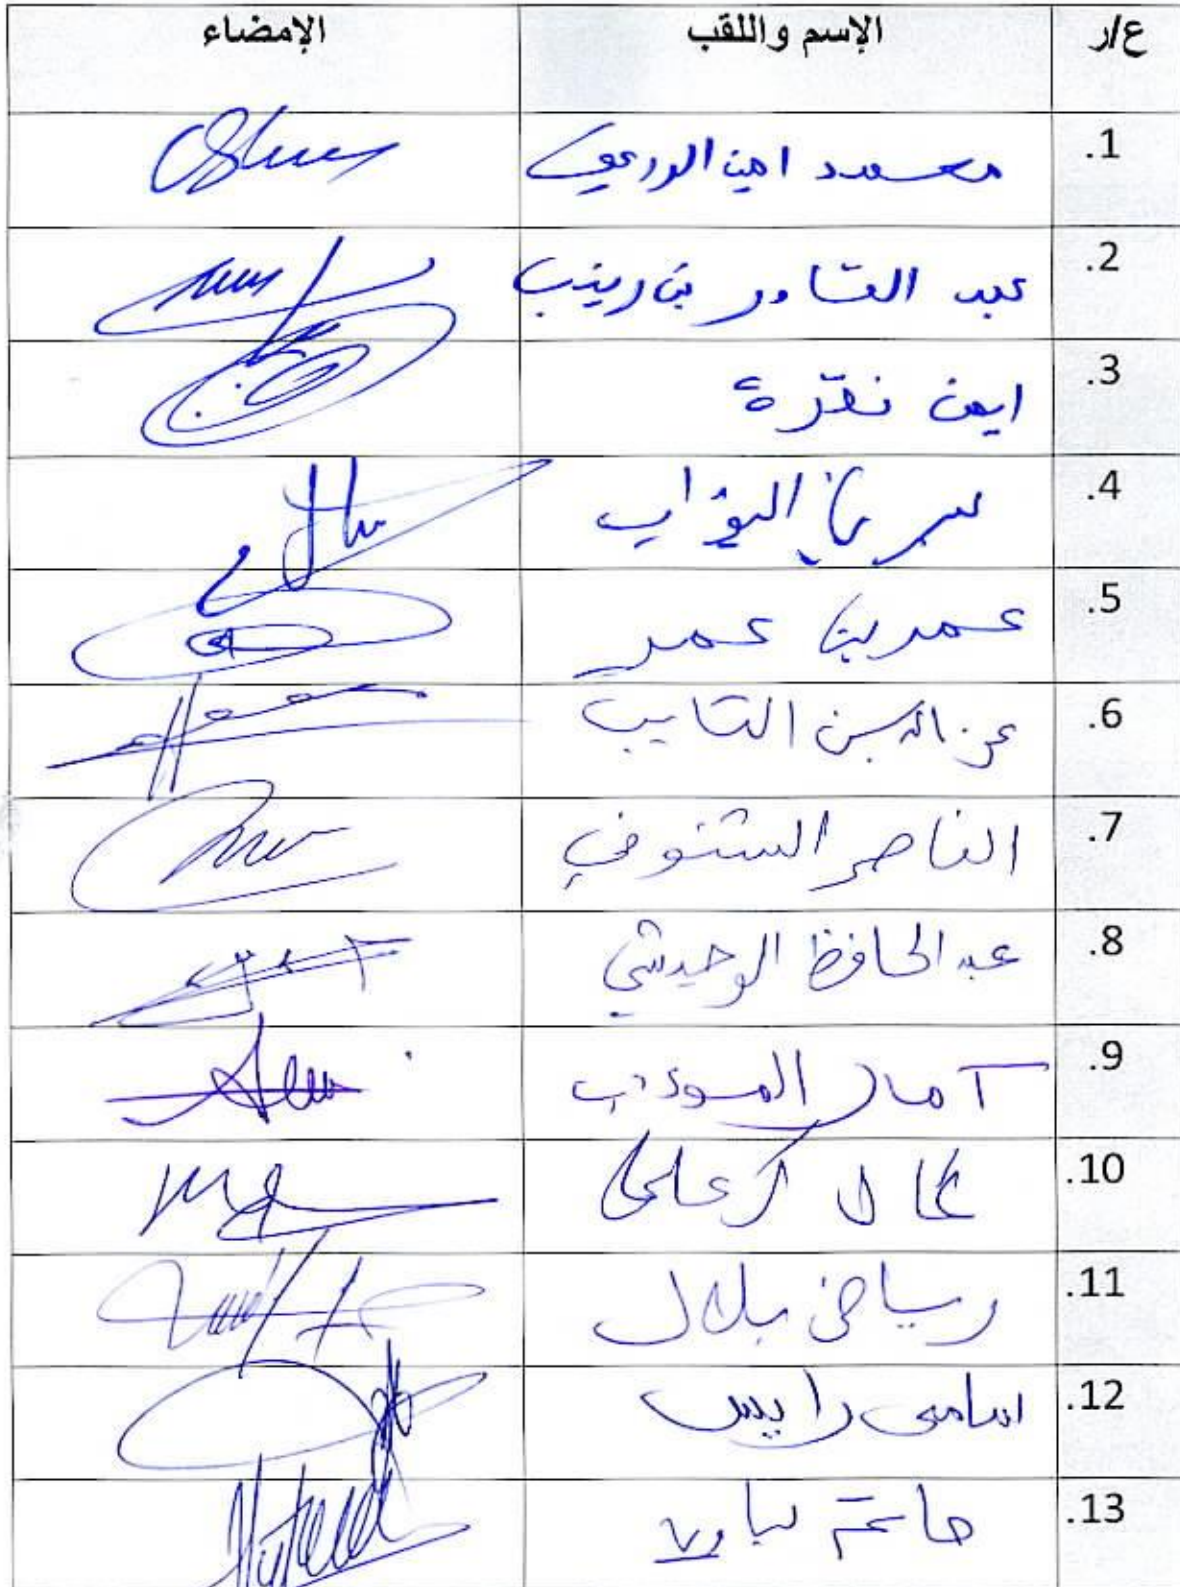 ع/ر الإسم واللقب الإمضاء
1. محمد امين الورغي
2. عبد القادر بن زينب
3. ايمن نقرة
4. البواب
5. عمر بن عمر
6. عز الدين التايب
7. الناصر الشنوفي
8. عبد الحافظ الوحيشي
9. آمال المؤدب
10. كمال كرعلي
11. رياض بلال
12. سامي رايس
13. حاتم